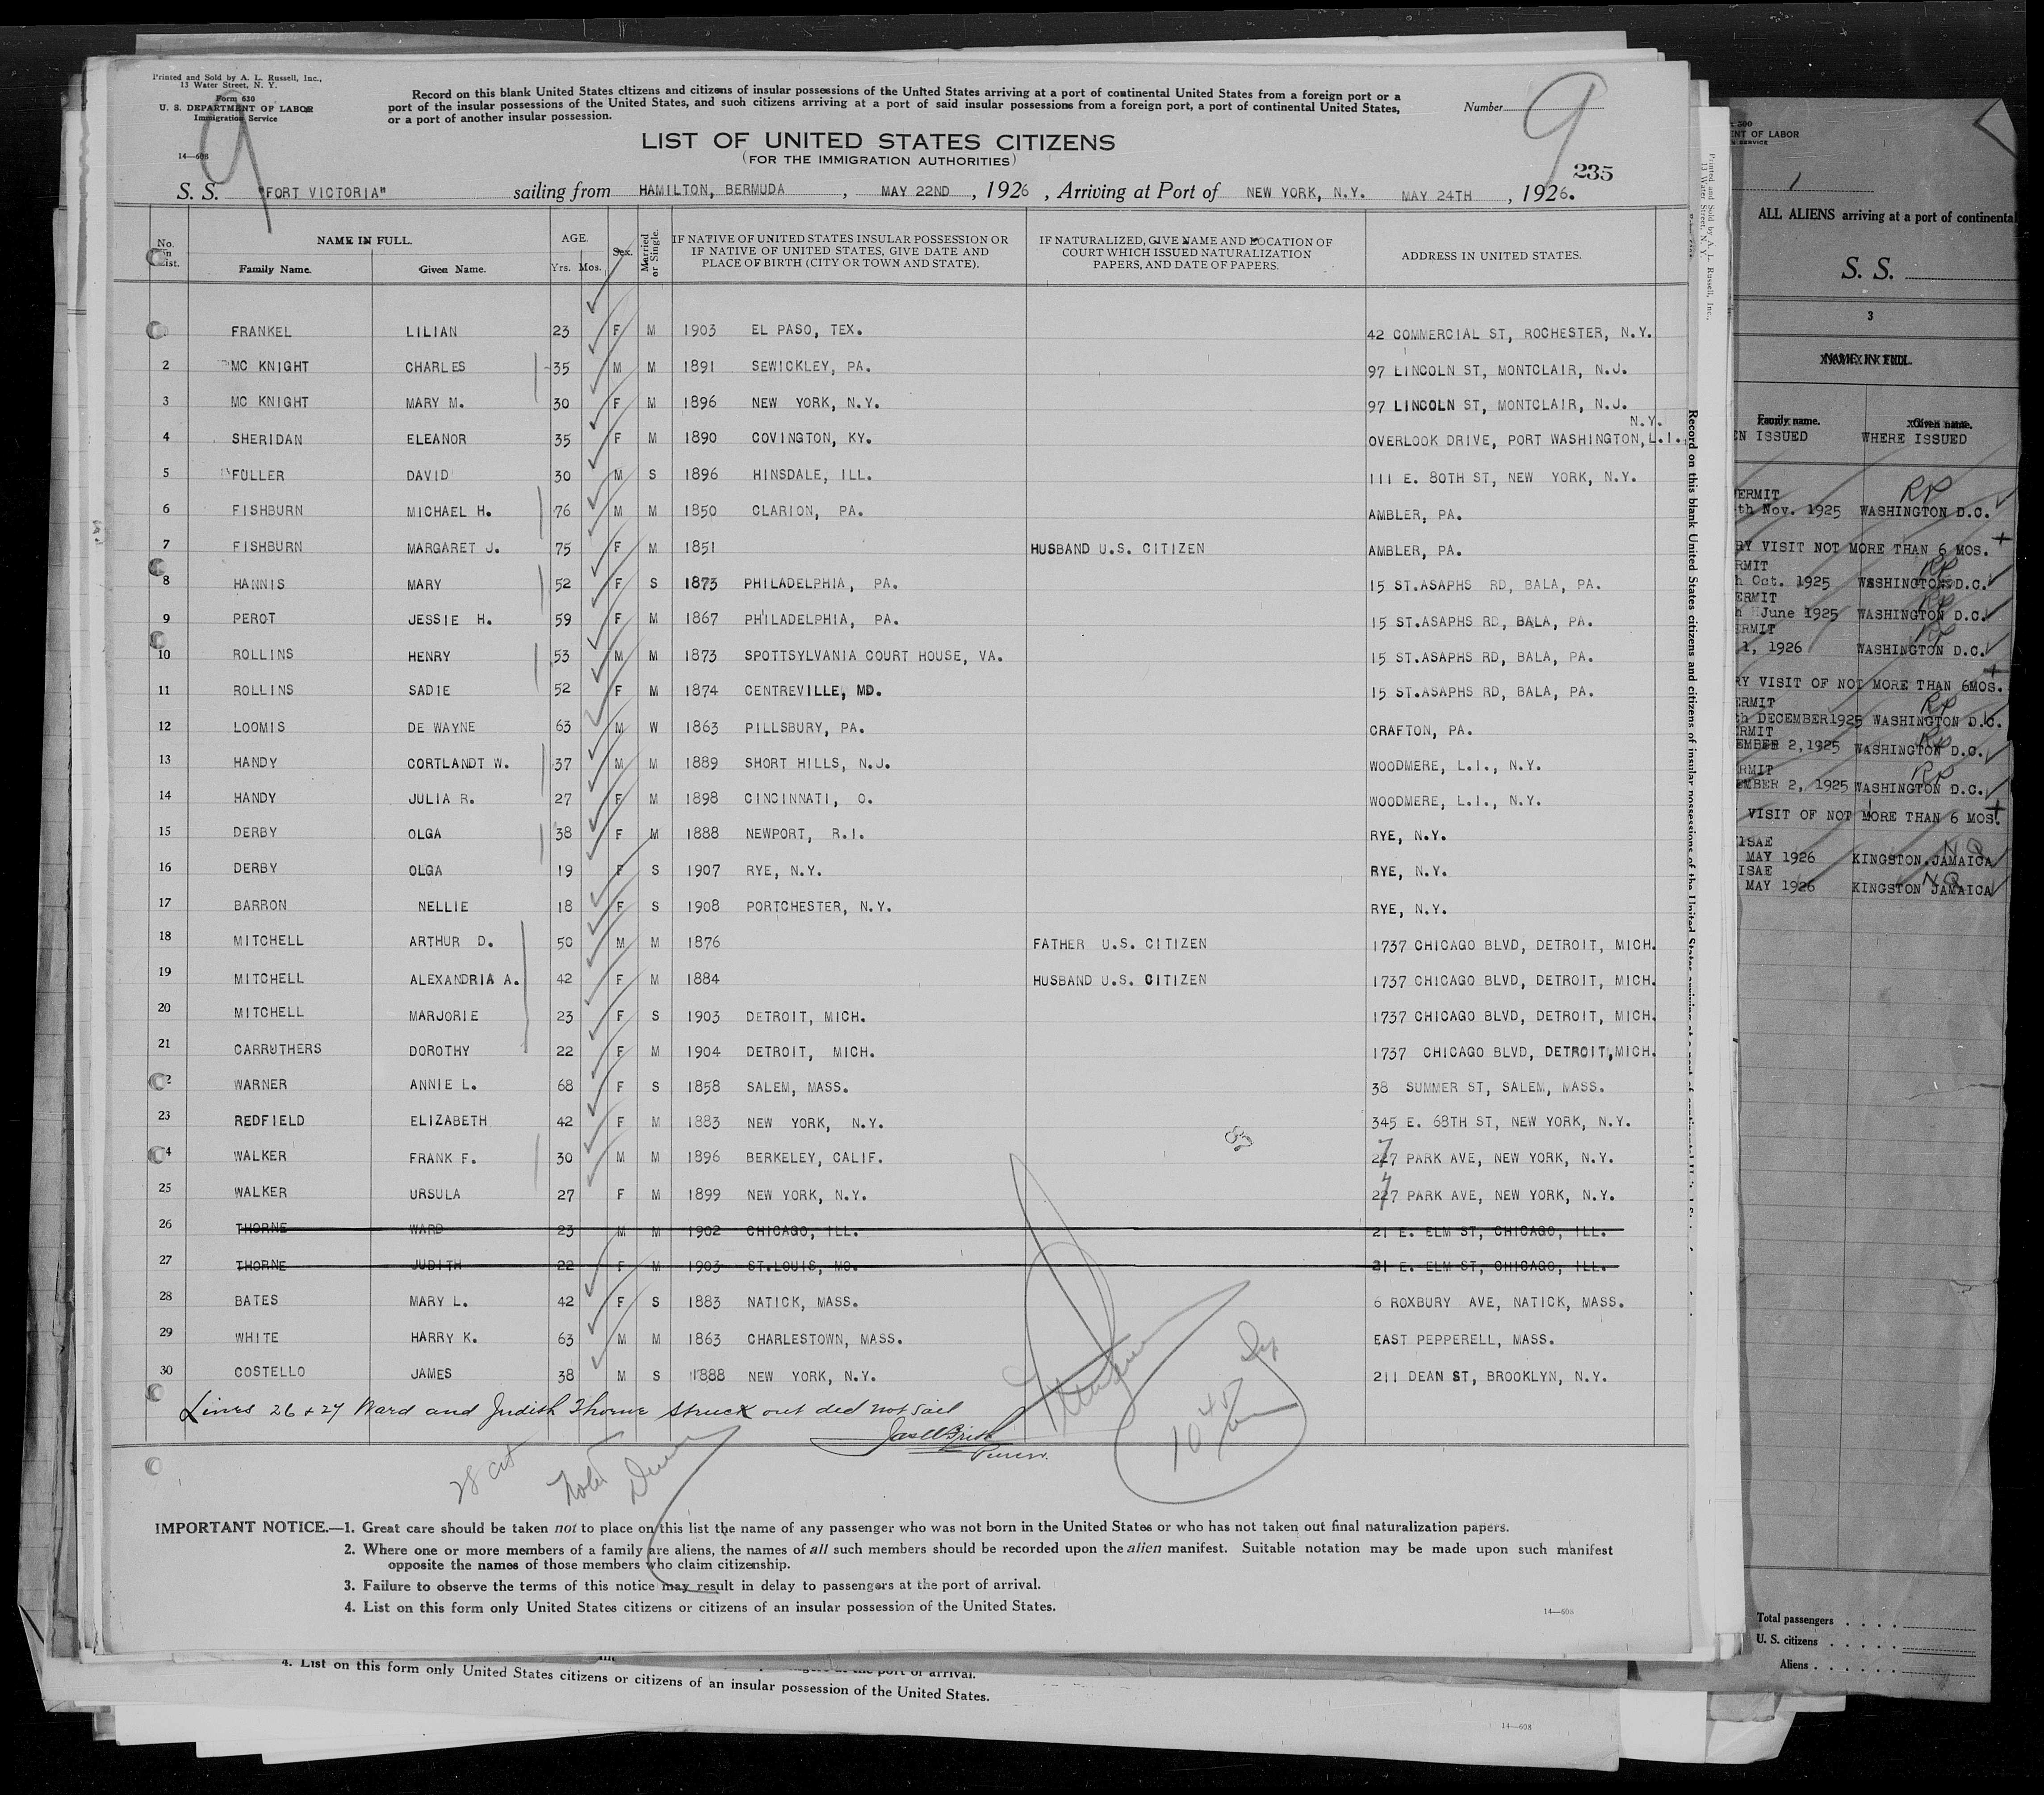 Printed and Sold by A. L. Russell, Inc.,
13 Water Street, N. Y.
Form 630
U. S. DEPARTMENT OF LABOR
Immigration Service
14—608
9
Record on this blank United States citizens and citizens of insular possessions of the United States arriving at a port of continental United States from a foreign port or a
port of the insular possessions of the United States, and such citizens arriving at a port of said insular possessions from a foreign port, a port of continental United States,
or a port of another insular possession.
Number
9
235
LIST OF UNITED STATES CITIZENS
(FOR THE IMMIGRATION AUTHORITIES)
S. S. "FORT VICTORIA" sailing from HAMILTON, BERMUDA, MAY 22ND, 1926, Arriving at Port of NEW YORK, N.Y. MAY 24TH, 1926.
No. in List. NAME IN FULL. AGE. Sex. Married or Single. IF NATIVE OF UNITED STATES INSULAR POSSESSION OR IF NATIVE OF UNITED STATES, GIVE DATE AND PLACE OF BIRTH (CITY OR TOWN AND STATE). IF NATURALIZED, GIVE NAME AND LOCATION OF COURT WHICH ISSUED NATURALIZATION PAPERS, AND DATE OF PAPERS. ADDRESS IN UNITED STATES.
Family Name. Given Name. Yrs. Mos.
FRANKEL LILIAN 23 F M 1903 EL PASO, TEX. 42 COMMERCIAL ST, ROCHESTER, N.Y.
2 MC KNIGHT CHARLES 35 M M 1891 SEWICKLEY, PA. 97 LINCOLN ST, MONTCLAIR, N.J.
3 MC KNIGHT MARY M. 30 F M 1896 NEW YORK, N.Y. 97 LINCOLN ST, MONTCLAIR, N.J.
N.Y.
4 SHERIDAN ELEANOR 35 F M 1890 COVINGTON, KY. OVERLOOK DRIVE, PORT WASHINGTON, L.I.,
5 FULLER DAVID 30 M S 1896 HINSDALE, ILL. 111 E. 80TH ST, NEW YORK, N.Y.
6 FISHBURN MICHAEL H. 76 M M 1850 CLARION, PA. AMBLER, PA.
7 FISHBURN MARGARET J. 75 F M 1851 HUSBAND U.S. CITIZEN AMBLER, PA.
8 HANNIS MARY 52 F S 1873 PHILADELPHIA, PA. 15 ST.ASAPHS RD, BALA, PA.
9 PEROT JESSIE H. 59 F M 1867 PHILADELPHIA, PA. 15 ST.ASAPHS RD, BALA, PA.
10 ROLLINS HENRY 53 M M 1873 SPOTTSYLVANIA COURT HOUSE, VA. 15 ST.ASAPHS RD, BALA, PA.
11 ROLLINS SADIE 52 F M 1874 CENTREVILLE, MD. 15 ST.ASAPHS RD, BALA, PA.
12 LOOMIS DE WAYNE 63 M W 1863 PILLSBURY, PA. CRAFTON, PA.
13 HANDY CORTLANDT W. 37 M M 1889 SHORT HILLS, N.J. WOODMERE, L.I., N.Y.
14 HANDY JULIA R. 27 F M 1898 CINCINNATI, O. WOODMERE, L.I., N.Y.
15 DERBY OLGA 38 F M 1888 NEWPORT, R.I. RYE, N.Y.
16 DERBY OLGA 19 F S 1907 RYE, N.Y. RYE, N.Y.
17 BARRON NELLIE 18 F S 1908 PORTCHESTER, N.Y. RYE, N.Y.
18 MITCHELL ARTHUR D. 50 M M 1876 FATHER U.S. CITIZEN 1737 CHICAGO BLVD, DETROIT, MICH.
19 MITCHELL ALEXANDRIA A. 42 F M 1884 HUSBAND U.S. CITIZEN 1737 CHICAGO BLVD, DETROIT, MICH.
20 MITCHELL MARJORIE 23 F S 1903 DETROIT, MICH. 1737 CHICAGO BLVD, DETROIT, MICH.
21 CARRUTHERS DOROTHY 22 F M 1904 DETROIT, MICH. 1737 CHICAGO BLVD, DETROIT, MICH.
2 WARNER ANNIE L. 68 F S 1858 SALEM, MASS. 38 SUMMER ST, SALEM, MASS.
23 REDFIELD ELIZABETH 42 F M 1883 NEW YORK, N.Y. 345 E. 68TH ST, NEW YORK, N.Y.
4 WALKER FRANK F. 30 M M 1896 BERKELEY, CALIF. 277 PARK AVE, NEW YORK, N.Y.
25 WALKER URSULA 27 F M 1899 NEW YORK, N.Y. 277 PARK AVE, NEW YORK, N.Y.
26 THORNE WARD 23 M M 1902 CHICAGO, ILL. 21 E. ELM ST, CHICAGO, ILL.
27 THORNE JUDITH 22 F M 1903 ST.LOUIS, MO. 21 E. ELM ST, CHICAGO, ILL.
28 BATES MARY L. 42 F S 1883 NATICK, MASS. 6 ROXBURY AVE, NATICK, MASS.
29 WHITE HARRY K. 63 M M 1863 CHARLESTOWN, MASS. EAST PEPPERELL, MASS.
30 COSTELLO JAMES 38 M S 1888 NEW YORK, N.Y. 211 DEAN ST, BROOKLYN, N.Y.
Lines 26 + 27 Ward and Judith Thorne struck out did not sail
Purser.
28 cit
10 45
IMPORTANT NOTICE.—1. Great care should be taken not to place on this list the name of any passenger who was not born in the United States or who has not taken out final naturalization papers.
2. Where one or more members of a family are aliens, the names of all such members should be recorded upon the alien manifest. Suitable notation may be made upon such manifest
opposite the names of those members who claim citizenship.
3. Failure to observe the terms of this notice may result in delay to passengers at the port of arrival.
4. List on this form only United States citizens or citizens of an insular possession of the United States.
14—608
4. List on this form only United States citizens or citizens of an insular possession of the United States.
14—608
Printed and Sold by A. L. Russell, Inc.,
13 Water Street, N. Y.
500
NT OF LABOR
SERVICE
1
ALL ALIENS arriving at a port of continental
S. S.
3
NAME IN FULL.
Family name. Given name.
EN ISSUED WHERE ISSUED
ERMIT RP
th Nov. 1925 WASHINGTON D.C.
RY VISIT NOT MORE THAN 6 MOS.
RMIT RP
h Oct. 1925 WASHINGTON D.C.
ERMIT RP
June 1925 WASHINGTON D.C.
ERMIT RP
1, 1926 WASHINGTON D.C.
RY VISIT OF NOT MORE THAN 6MOS.
ERMIT RP
th DECEMBER1925 WASHINGTON D.C.
RMIT RP
EMBER 2,1925 WASHINGTON D.C.
RMIT RP
EMBER 2, 1925 WASHINGTON D.C.
VISIT OF NOT MORE THAN 6 MOS.
ISAE NQ
MAY 1926 KINGSTON JAMAICA
ISAE NQ
MAY 1926 KINGSTON JAMAICA
Total passengers
U. S. citizens
Aliens